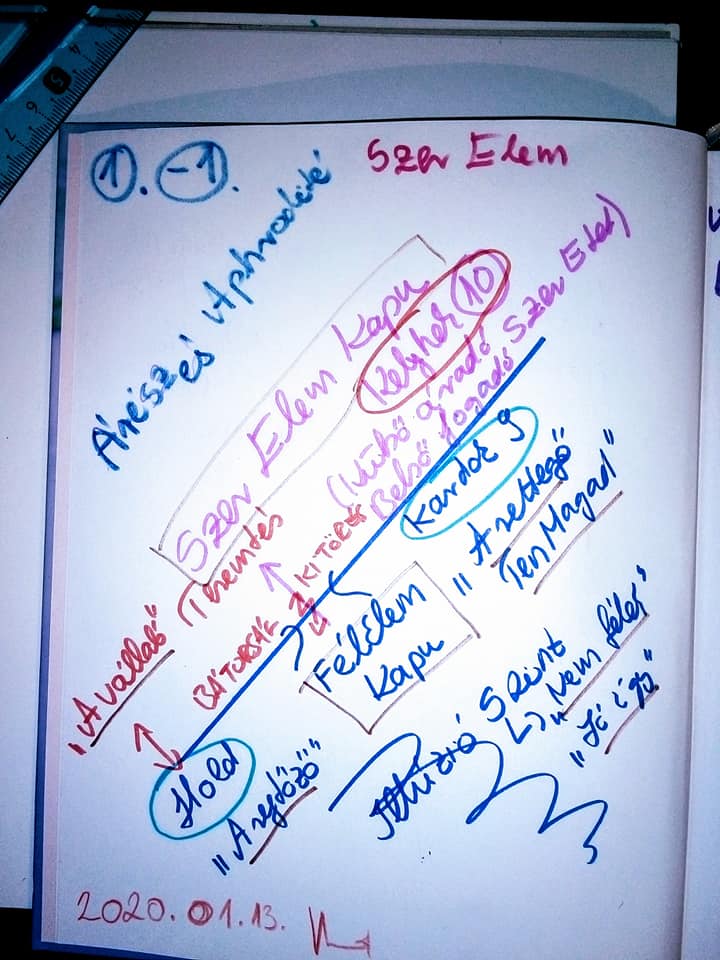 ①. -①.
Szer Elem
Árész és Aphrodité
Szer Elem Kapu
Kelyhek 10
(Külső áradó
Belső fogadó Szer Etet)
Teremtés
KITÖRÉS
BÁTORSÁG
"A vállaló"
Kardok 9
"A rettegő"
Ten Magad"
Félelem
Kapu
Hold
"A rejtőző"
Szint
"Nem félek"
"Jó így"
2020.01.13.